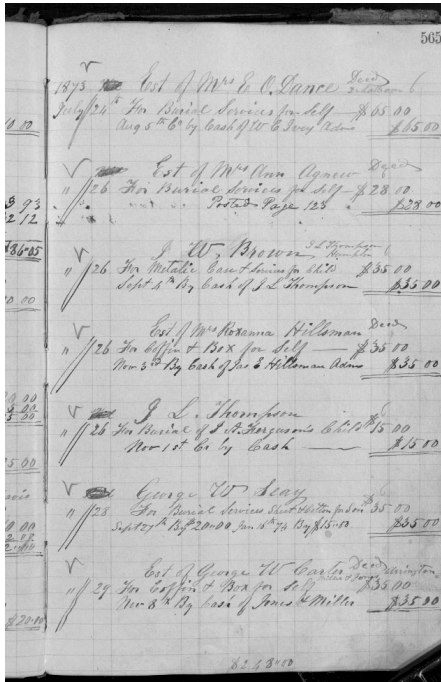 565
1873 Est of Mrs E. O. Dance Decd
July 24th For Burial Services for Self — $65.00
Aug 5th Cr by Cash of W E Ivey Adms $65.00
Est of Mrs Ann Agnew Decd
" 26 For Burial Services for Self — $28.00
" " " " Posted Page 123 $28.00
J. W. Brown J L Thompson
" 26 For Metalic Case & Services for Child $35.00
Sept 5th By Cash of J L Thompson $35.00
Est of Mrs Roxanna Hillsman Decd
" 26 For Coffin & Box for Self — $35.00
Nov 3rd By Cash of Jas E Hillsman Adms $35.00
J. L. Thompson
" 26 For Burial of J. A. Fergason's Child $15.00
Nov 1st Cr by Cash — $15.00
George W Seay
" 28 For Burial Services for Son $35.00
Sept 27th By $20.00 Jan 16th 74 By $15.00 $35.00
Est of George W Carter Decd
" 29 For Coffin & Box for Self $35.00
Nov 8th By Cash of Jones & Miller $35.00